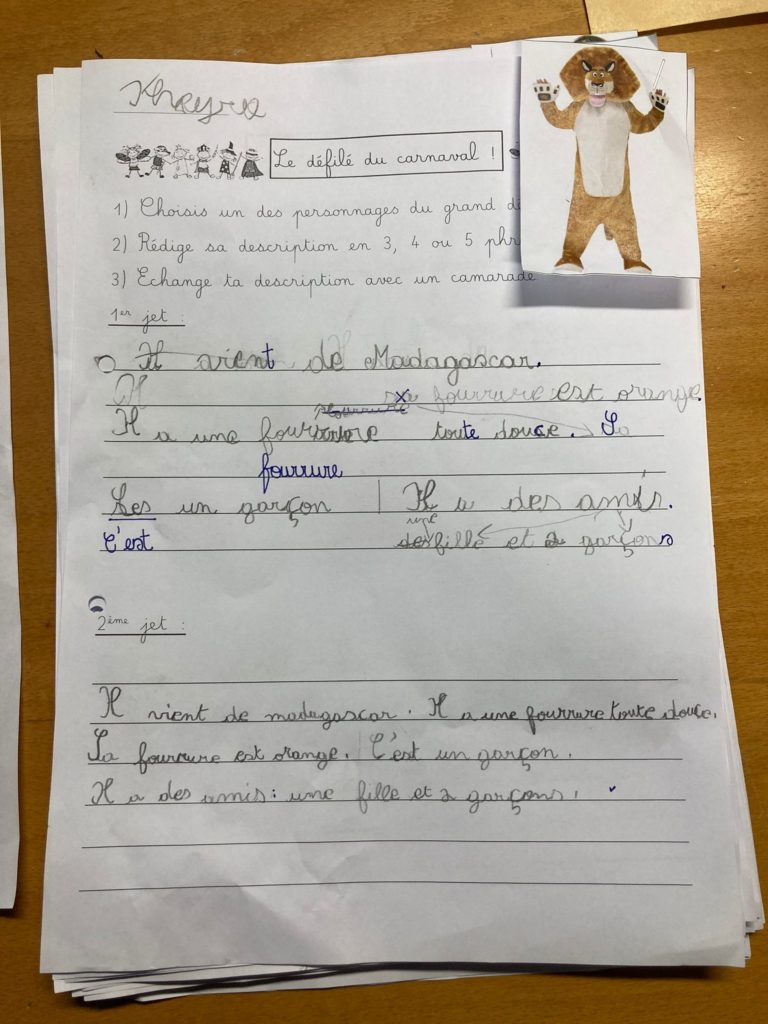 Kheyra
Le défilé du carnaval !
1) Choisis un des personnages du grand dé
2) Rédige sa description en 3, 4 ou 5 phr
3) Echange ta description avec un camarade
1er jet :
Il vient de Madagascar.
sa fourrure est orange.
Il a une fourrure toute douce. Sa
fourrure
Les un garçon | Il a des amis.
une
C'est des fille et 2 garçons
2ème jet :
Il vient de madagascar. Il a une fourrure toute douce.
Sa fourrure est orange. C'est un garçon.
Il a des amis : une fille et 2 garçons.